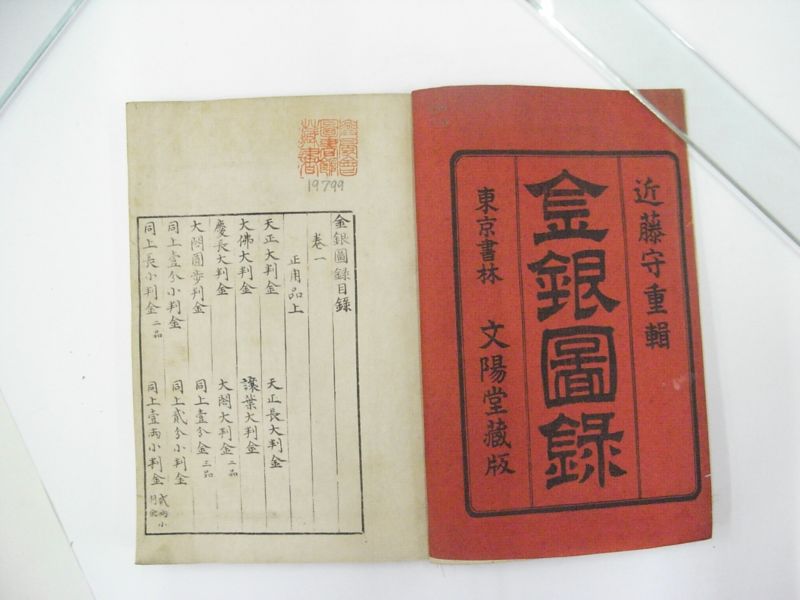 近藤守重輯
金銀圖錄
東京書林 文陽堂藏版
19799
金銀圖録目録
卷一
正用品上
天正大判金 天正長大判金
大佛大判金 讓葉大判金
慶長大判金 大閤大判金二品
大閤圓歩判金 同上壹分金三品
同上壹分小判金 同上貳分小判金
同上長小判金二品 同上壹兩小判金